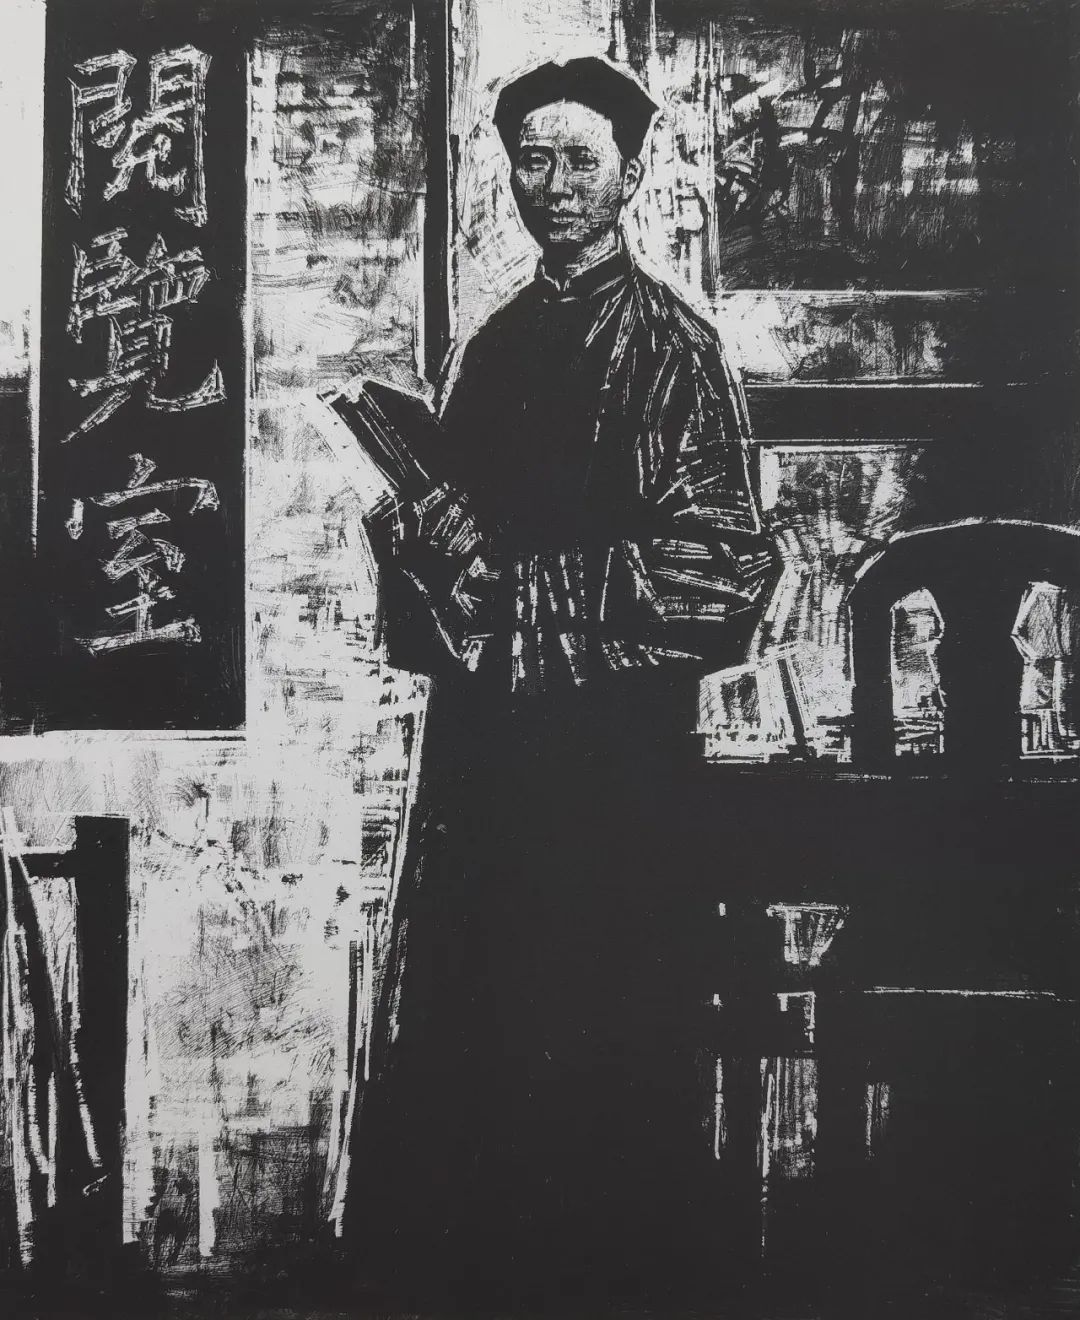 閱覽室